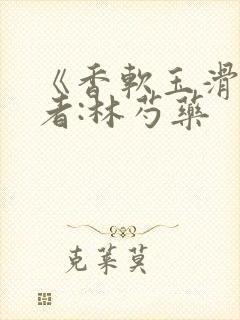 《香軟玉滑
者:林芍藥
克萊莫